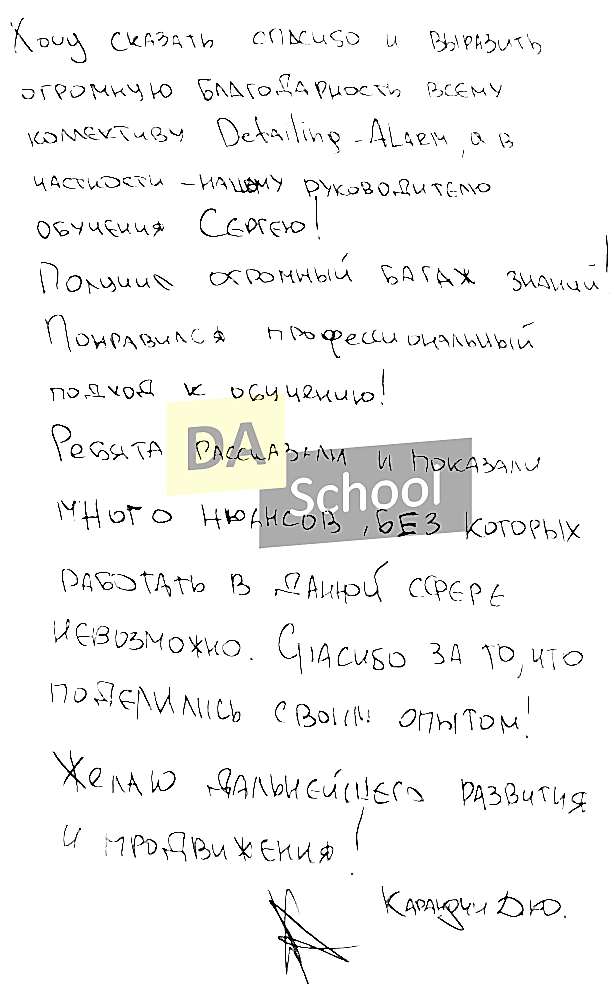 Хочу сказать спасибо и выразить
огромную благодарность всему
коллективу Detailing-Alarm, а в
частности – нашему руководителю
обучения Сергею!
Получил огромный багаж знаний!
Понравился профессиональный
подход к обучению!
Ребята рассказали и показали
DA
School
много нюансов, без которых
работать в данной сфере
невозможно. Спасибо за то, что
поделились своим опытом!
Желаю дальнейшего развития
и продвижения!
Д.Ю.